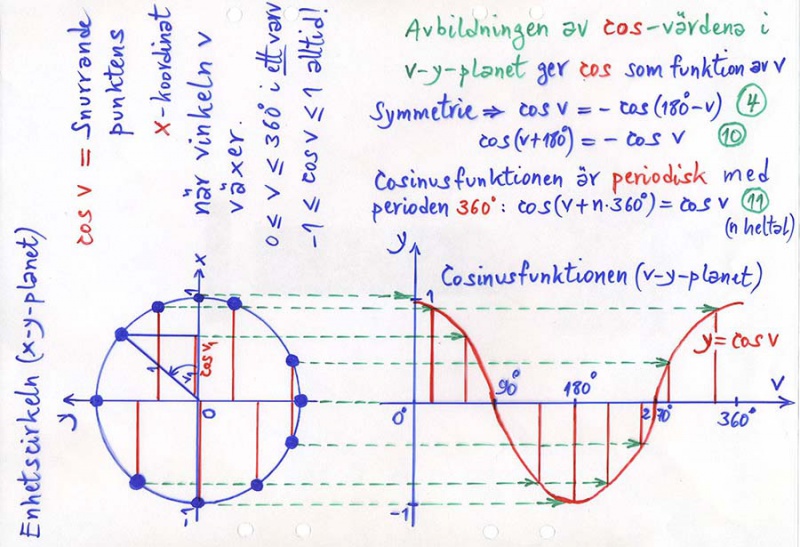 Avbildningen av cos-värdena i
v-y-planet ger cos som funktion av v
Symmetrie ⇒ cos v = - cos(180°-v) ④
cos(v+180°) = - cos v ⑩
Cosinusfunktionen är periodisk med
perioden 360°: cos(v+n·360°) = cos v ⑪
(n heltal)
cos v = Snurrande
punktens
x-koordinat
när vinkeln v
växer.
0 ≤ v ≤ 360° i ett varv
-1 ≤ cos v ≤ 1 alltid!
Enhetscirkeln (x-y-planet)
x
1
y
1
v₁
cos v₁
0
-1
Cosinusfunktionen (v-y-planet)
y
1
y = cos v
0°
90°
180°
270°
360°
v
-1